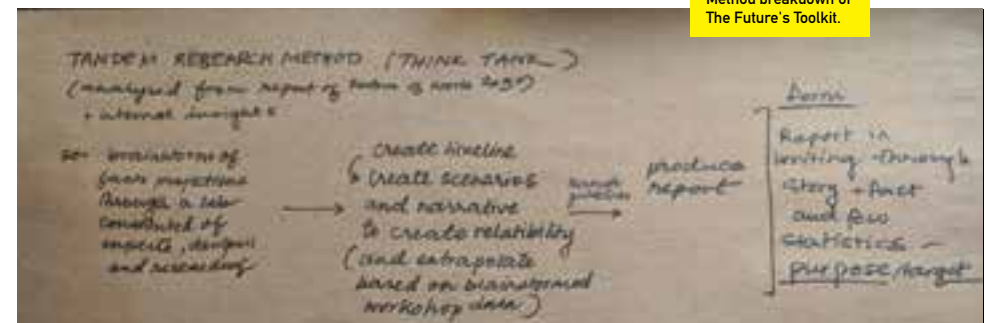 Method breakdown of
The Future's Toolkit.
TANDEM RESEARCH METHOD (THINK TANK)
(analysed from report of future of work
+ internal insights
brainstorms of
projections
through a
consisted of
experts,
and
create timeline
create scenarios
and narrative
to create relatibility
(and extrapolate
based on brainstormed
workshop data)
produce
report
Form
Report in
writing through
story + fact
and few
statistics -
purpose/target